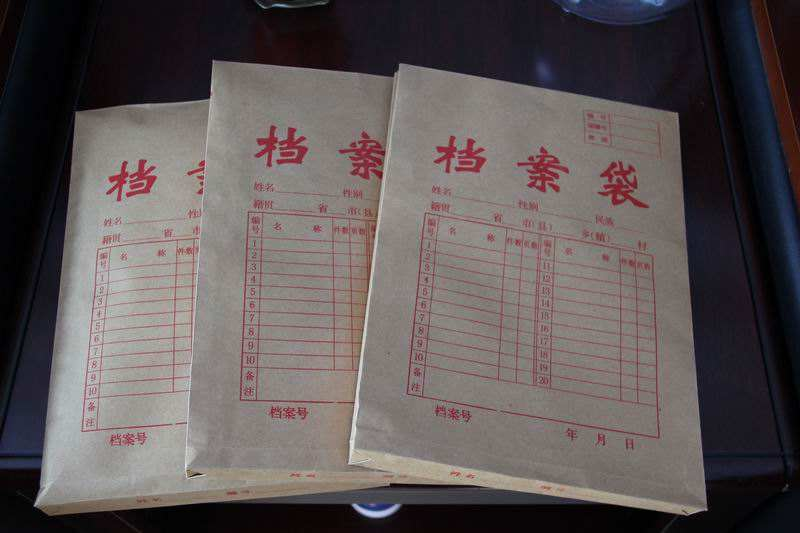 档 案 袋
姓名 性别 民族
籍贯 省 市(县) 乡(镇) 村
编号 名 称 件数 页数 编号 名 称 件数 页数
1 11
2 12
3 13
4 14
5 15
6 16
7 17
8 18
9 19
10 20
备注
档案号 年 月 日
姓名
档 案
姓名 性别
籍贯 省 市(县
编号 名 称 件数 页数
1
2
3
4
5
6
7
8
9
10
备注
档案号
姓名
档 案
姓名 性
籍贯 省 市
编号 名 称 件数
1
2
3
4
5
6
7
8
9
10
备注
档案号